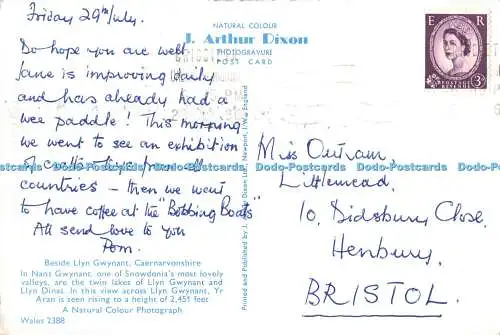 Friday 29th/July.
Do hope you are well
Jane is improving daily
and has already had a
wee paddle! This morning
we went to see an exhibition
of from all
countries – then we went
to have coffee at the "Bobbing Boats"
All send love to you
Pom.
Beside Llyn Gwynant, Caernarvonshire
In Nant Gwynant, one of Snowdonia's most lovely
valleys, are the twin lakes of Llyn Gwynant and
Llyn Dinas. In this view across Llyn Gwynant, Yr
Aran is seen rising to a height of 2,451 feet
A Natural Colour Photograph
Wales 2388
NATURAL COLOUR
J. Arthur Dixon
PHOTOGRAVURE
POST CARD
Printed and Published by J. Arthur Dixon Ltd., Newport, I.W., England
E R
POSTAGE REVENUE
3D
Miss Outram,
Littlemead,
10, Didsbury Close,
Henbury,
BRISTOL.
Dodo-Postcards Dodo-Postcards Dodo-Postcards Dodo-Postcards Dodo-Postcards